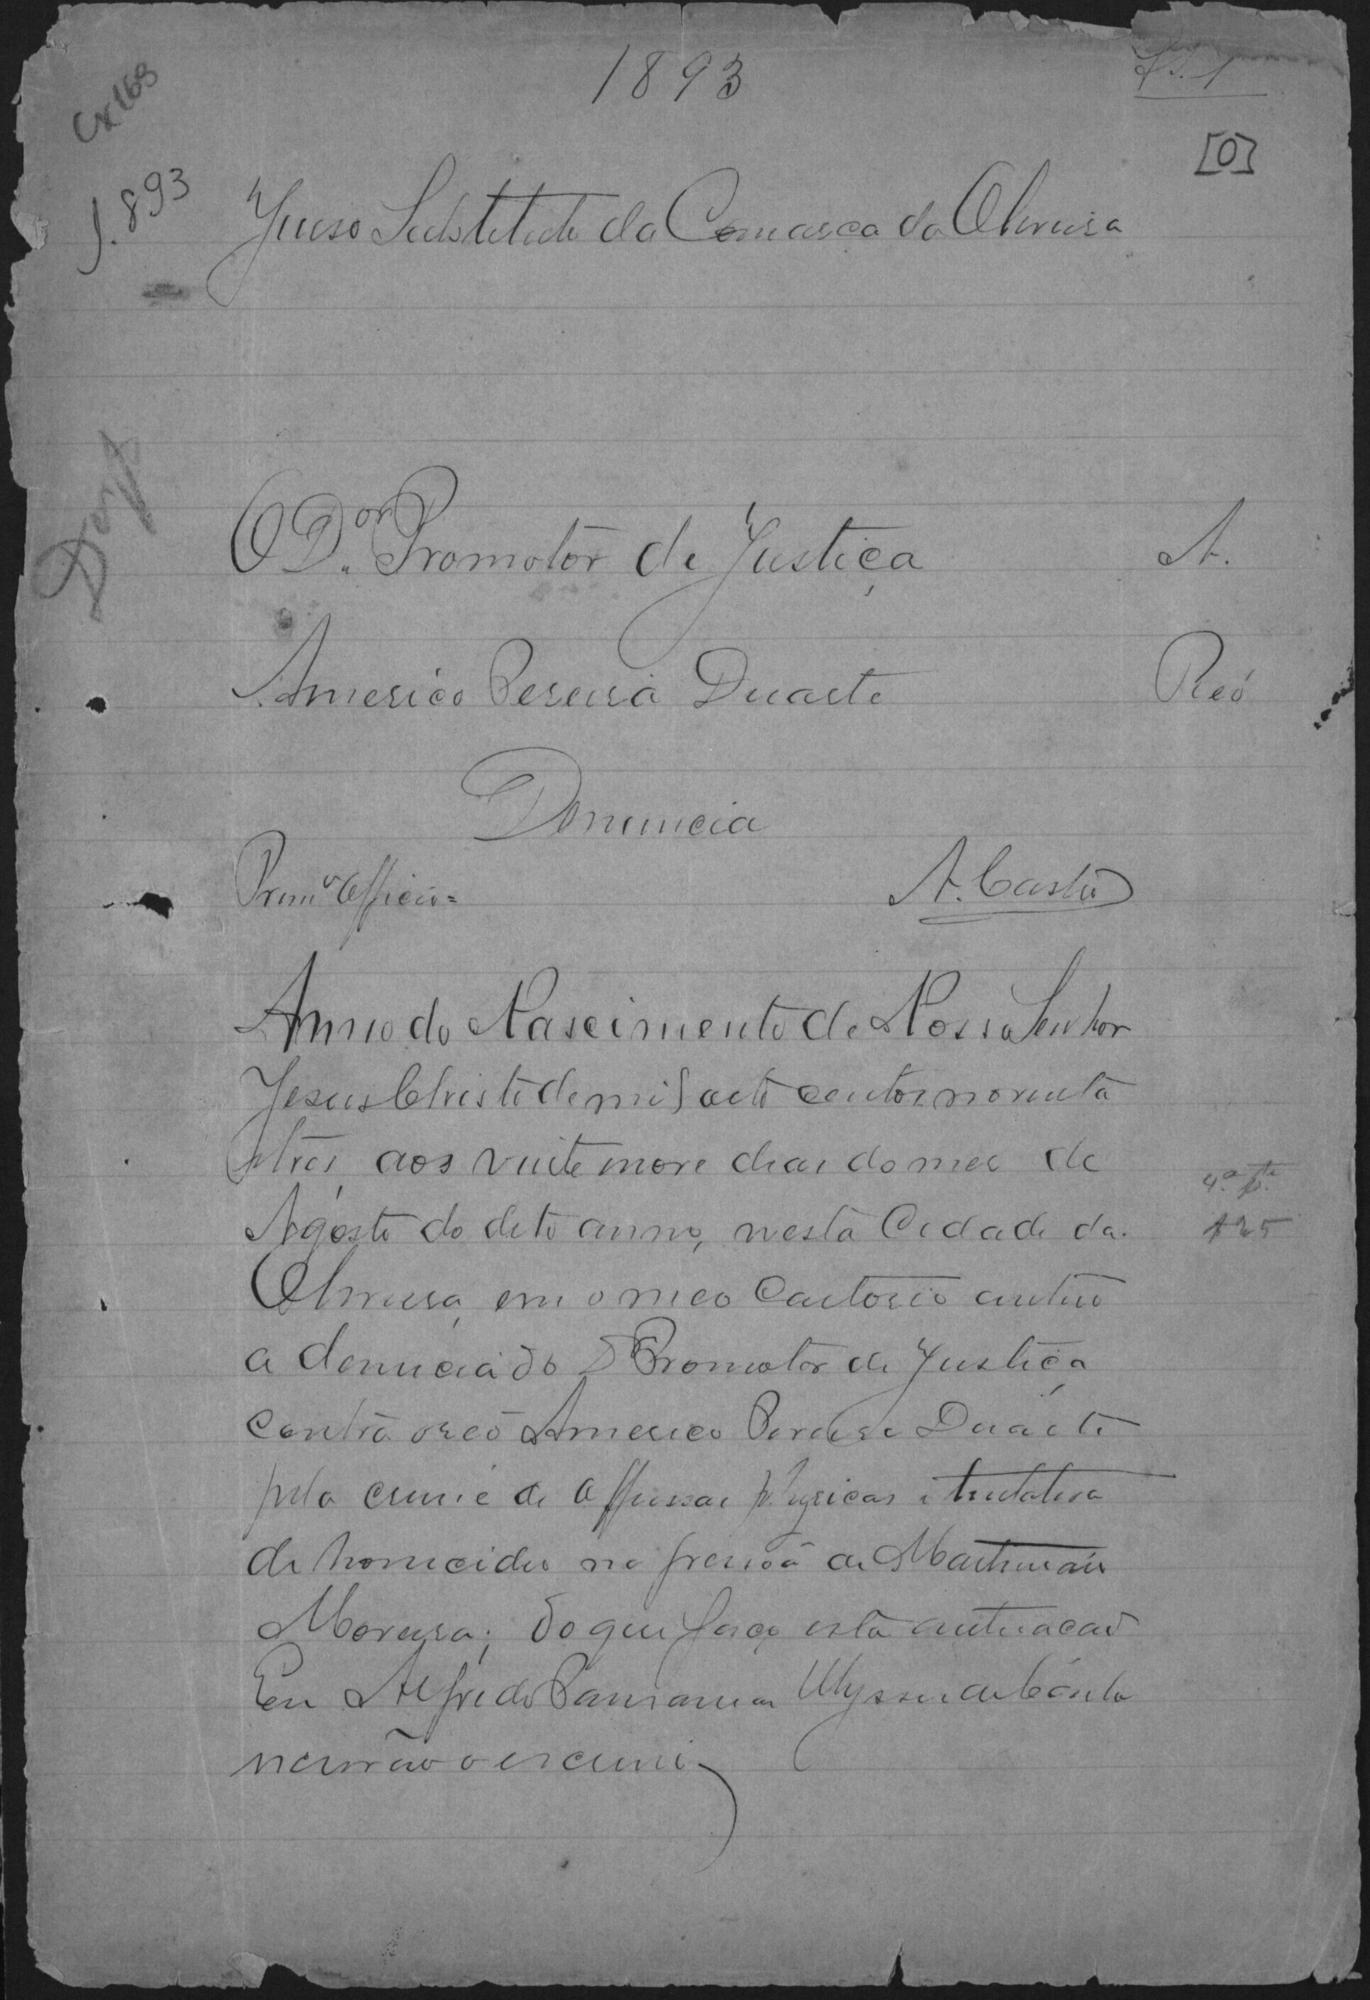 1893
Fls. 1
Cx 168
[0]
1.893
Juiso Substituto da Comarca da Oliveira
O D.or Promotor de Justiça A.
Americo Pereira Duarte Reó
Denuncia
Prim.o Officio= A. Casta
Anno do Nascimento de Nosso Senhor
Jesus Christo de mil oito centos noventa
e tres, aos vinte nove dias do mes de
Agosto do dito anno, nesta Cidade da
Oliveira, em o meo Cartorio autuo
a denuncia do D.r Promotor de Justiça
contra o reó Americo Pereira Duarte
pelo crime de offensas physicas e tentativa
de homicidio na pessoa de Martiniano
Moreira; do que faço esta autuacaõ
Eu Alfredo Ulysses da Costa
escrivão o escrevi
4.a p.te
125